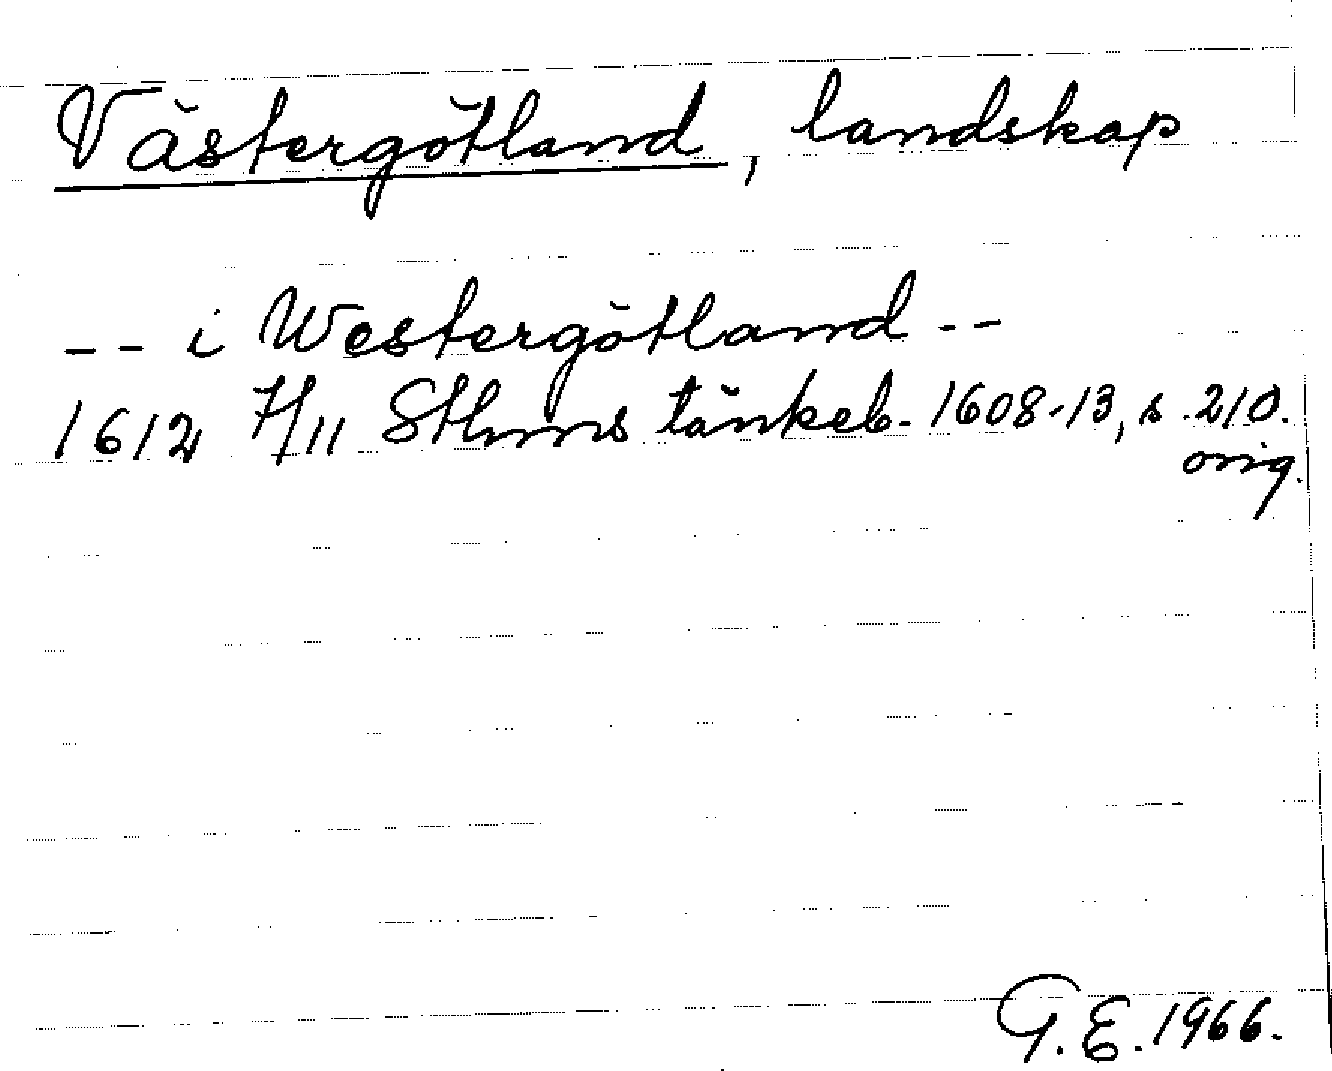 Västergötland, landskap
-- i Westergötland --
1612 7/11 Sthms tänkeb. 1608-13, s. 210.
orig.
G.E. 1966.